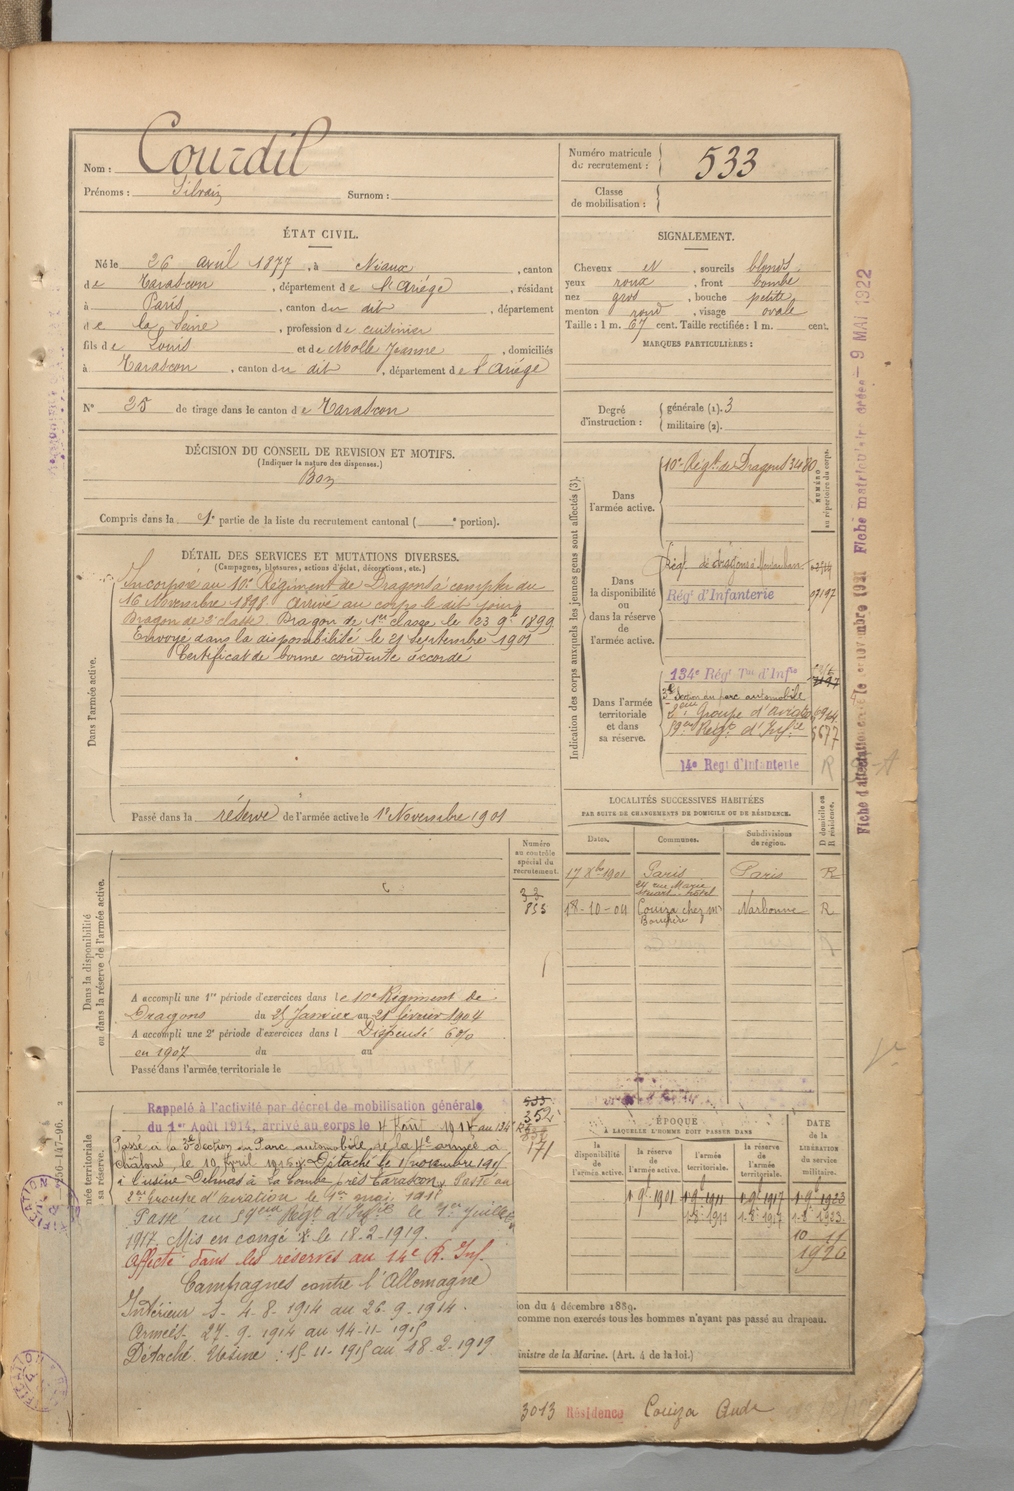 Nom : Courdil
Prénoms : Silvain Surnom :
Numéro matricule du recrutement : 533
Classe de mobilisation :
ÉTAT CIVIL.
Né le 26 avril 1877, à Niaux, canton
de Tarascon, département de l'Ariége, résidant
à Paris, canton du dit, département
de la Seine, profession de cuisinier
fils de Louis et de Molle Jeanne, domiciliés
à Tarascon, canton du dit, département de l'Ariége
N° 25 de tirage dans le canton de Tarascon
SIGNALEMENT.
Cheveux N, sourcils blonds
yeux roux, front bombé
nez gros, bouche petite
menton rond, visage ovale
Taille : 1 m. 67 cent. Taille rectifiée : 1 m. cent.
MARQUES PARTICULIÈRES :
Degré d'instruction : générale (1). 3
militaire (2).
DÉCISION DU CONSEIL DE REVISION ET MOTIFS.
(Indiquer la nature des dispenses.)
Bon
Compris dans la 1e partie de la liste du recrutement cantonal ( e portion).
DÉTAIL DES SERVICES ET MUTATIONS DIVERSES.
(Campagnes, blessures, actions d'éclat, décorations, etc.)
Dans l'armée active.
Incorporé au 10e Régiment de Dragons à compter du
16 Novembre 1898 arrivé au corps le dit jour
Dragon de 2e classe. Dragon de 1ere classe le 23 9bre 1899
Envoyé dans la disponibilité le 21 septembre 1901
Certificat de bonne conduite accordé
Passé dans la réserve de l'armée active le 1er Novembre 1901
Indication des corps auxquels les jeunes gens sont affectés (3).
NUMÉRO au répertoire du corps.
Dans l'armée active.
10e Régt de Dragons 3480
Dans la disponibilité ou dans la réserve de l'armée active.
Régt de dragons à Montauban
Régt d'Infanterie
Dans l'armée territoriale et dans sa réserve.
134e Régt Tal d'Infie
3e Section du parc automobile
2eme Groupe d'aviat
59eme Régt d'Infie 5677
14e Régt d'Infanterie R
Numéro au contrôle spécial du recrutement.
Dans la disponibilité ou dans la réserve de l'armée active.
A accompli une 1re période d'exercices dans le 10e Régiment de
Dragons du 25 Janvier au 21 février 1904
A accompli une 2e période d'exercices dans l Dispensé 6%
en 1907 du au
Passé dans l'armée territoriale le
LOCALITÉS SUCCESSIVES HABITÉES
PAR SUITE DE CHANGEMENTS DE DOMICILE OU DE RÉSIDENCE.
Dates. Communes. Subdivisions de région. D domicile ou R résidence.
17 Xbre 1901 Paris Paris R
24 rue Marie Stuart hôtel
18-10-04 Couiza chez Mr Narbonne R
Rappelé à l'activité par décret de mobilisation générale
du 1er Août 1914, arrivé au corps le 4 Août 1914 au 134
Passé à la 3e Section du Parc automobile de la 4e armée à
Châlons, le 10 Avril 1915. Détaché le 15 novembre 1915
à l'usine Delmas à La Combe près Tarascon. Passé au
2me Groupe d'aviation le 9
Passé au 59eme Régt d'Infie le 1er Juillet
1917. Mis en congé le 18-2-1919.
Affecté dans les réserves au 14e R. Inf.
Campagnes contre l'Allemagne
Intérieur 4-8-1914 au 26-9-1914.
Armées 27-9-1914 au 14-11-1915
Détaché Usine : 15-11-1915 au 18-2-1919
352
171
ÉPOQUE
À LAQUELLE L'HOMME DOIT PASSER DANS
la disponibilité de l'armée active. la réserve de l'armée active. l'armée territoriale. la réserve de l'armée territoriale.
DATE de la LIBÉRATION du service militaire.
1 9b 1901 1 9b 1911 1 9b 1917 1 9b 1923
1-8 1911 1-8 1917 1-8 1923
10 11
1926
ion du 4 décembre 1889.
comme non exercés tous les hommes n'ayant pas passé au drapeau.
inistre de la Marine. (Art. 4 de la loi.)
3013 Résidence Couiza Aude
Fiche matriculaire créée - 9 MAI 1922